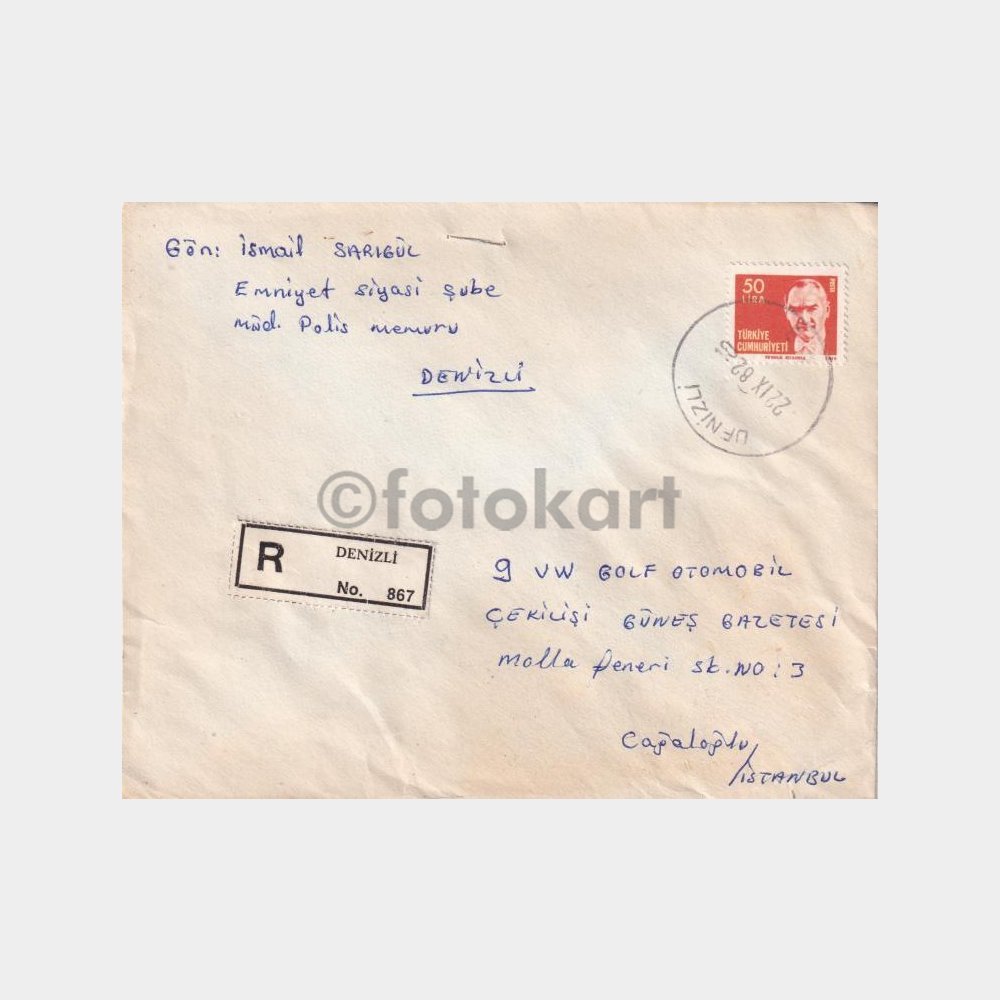 Gön: İsmail SARIGÜL
Emniyet siyasi Şube
Müd. Polis memuru
DENİZLİ
50
LİRA
POSTA
TÜRKİYE
CUMHURİYETİ
22 IX 82
DENİZLİ
©fotokart
R DENİZLİ
No. 867
9 VW GOLF OTOMOBİL
ÇEKİLİŞİ GÜNEŞ GAZETESİ
Molla feneri sk. NO: 3
Cağaloğlu
/İSTANBUL